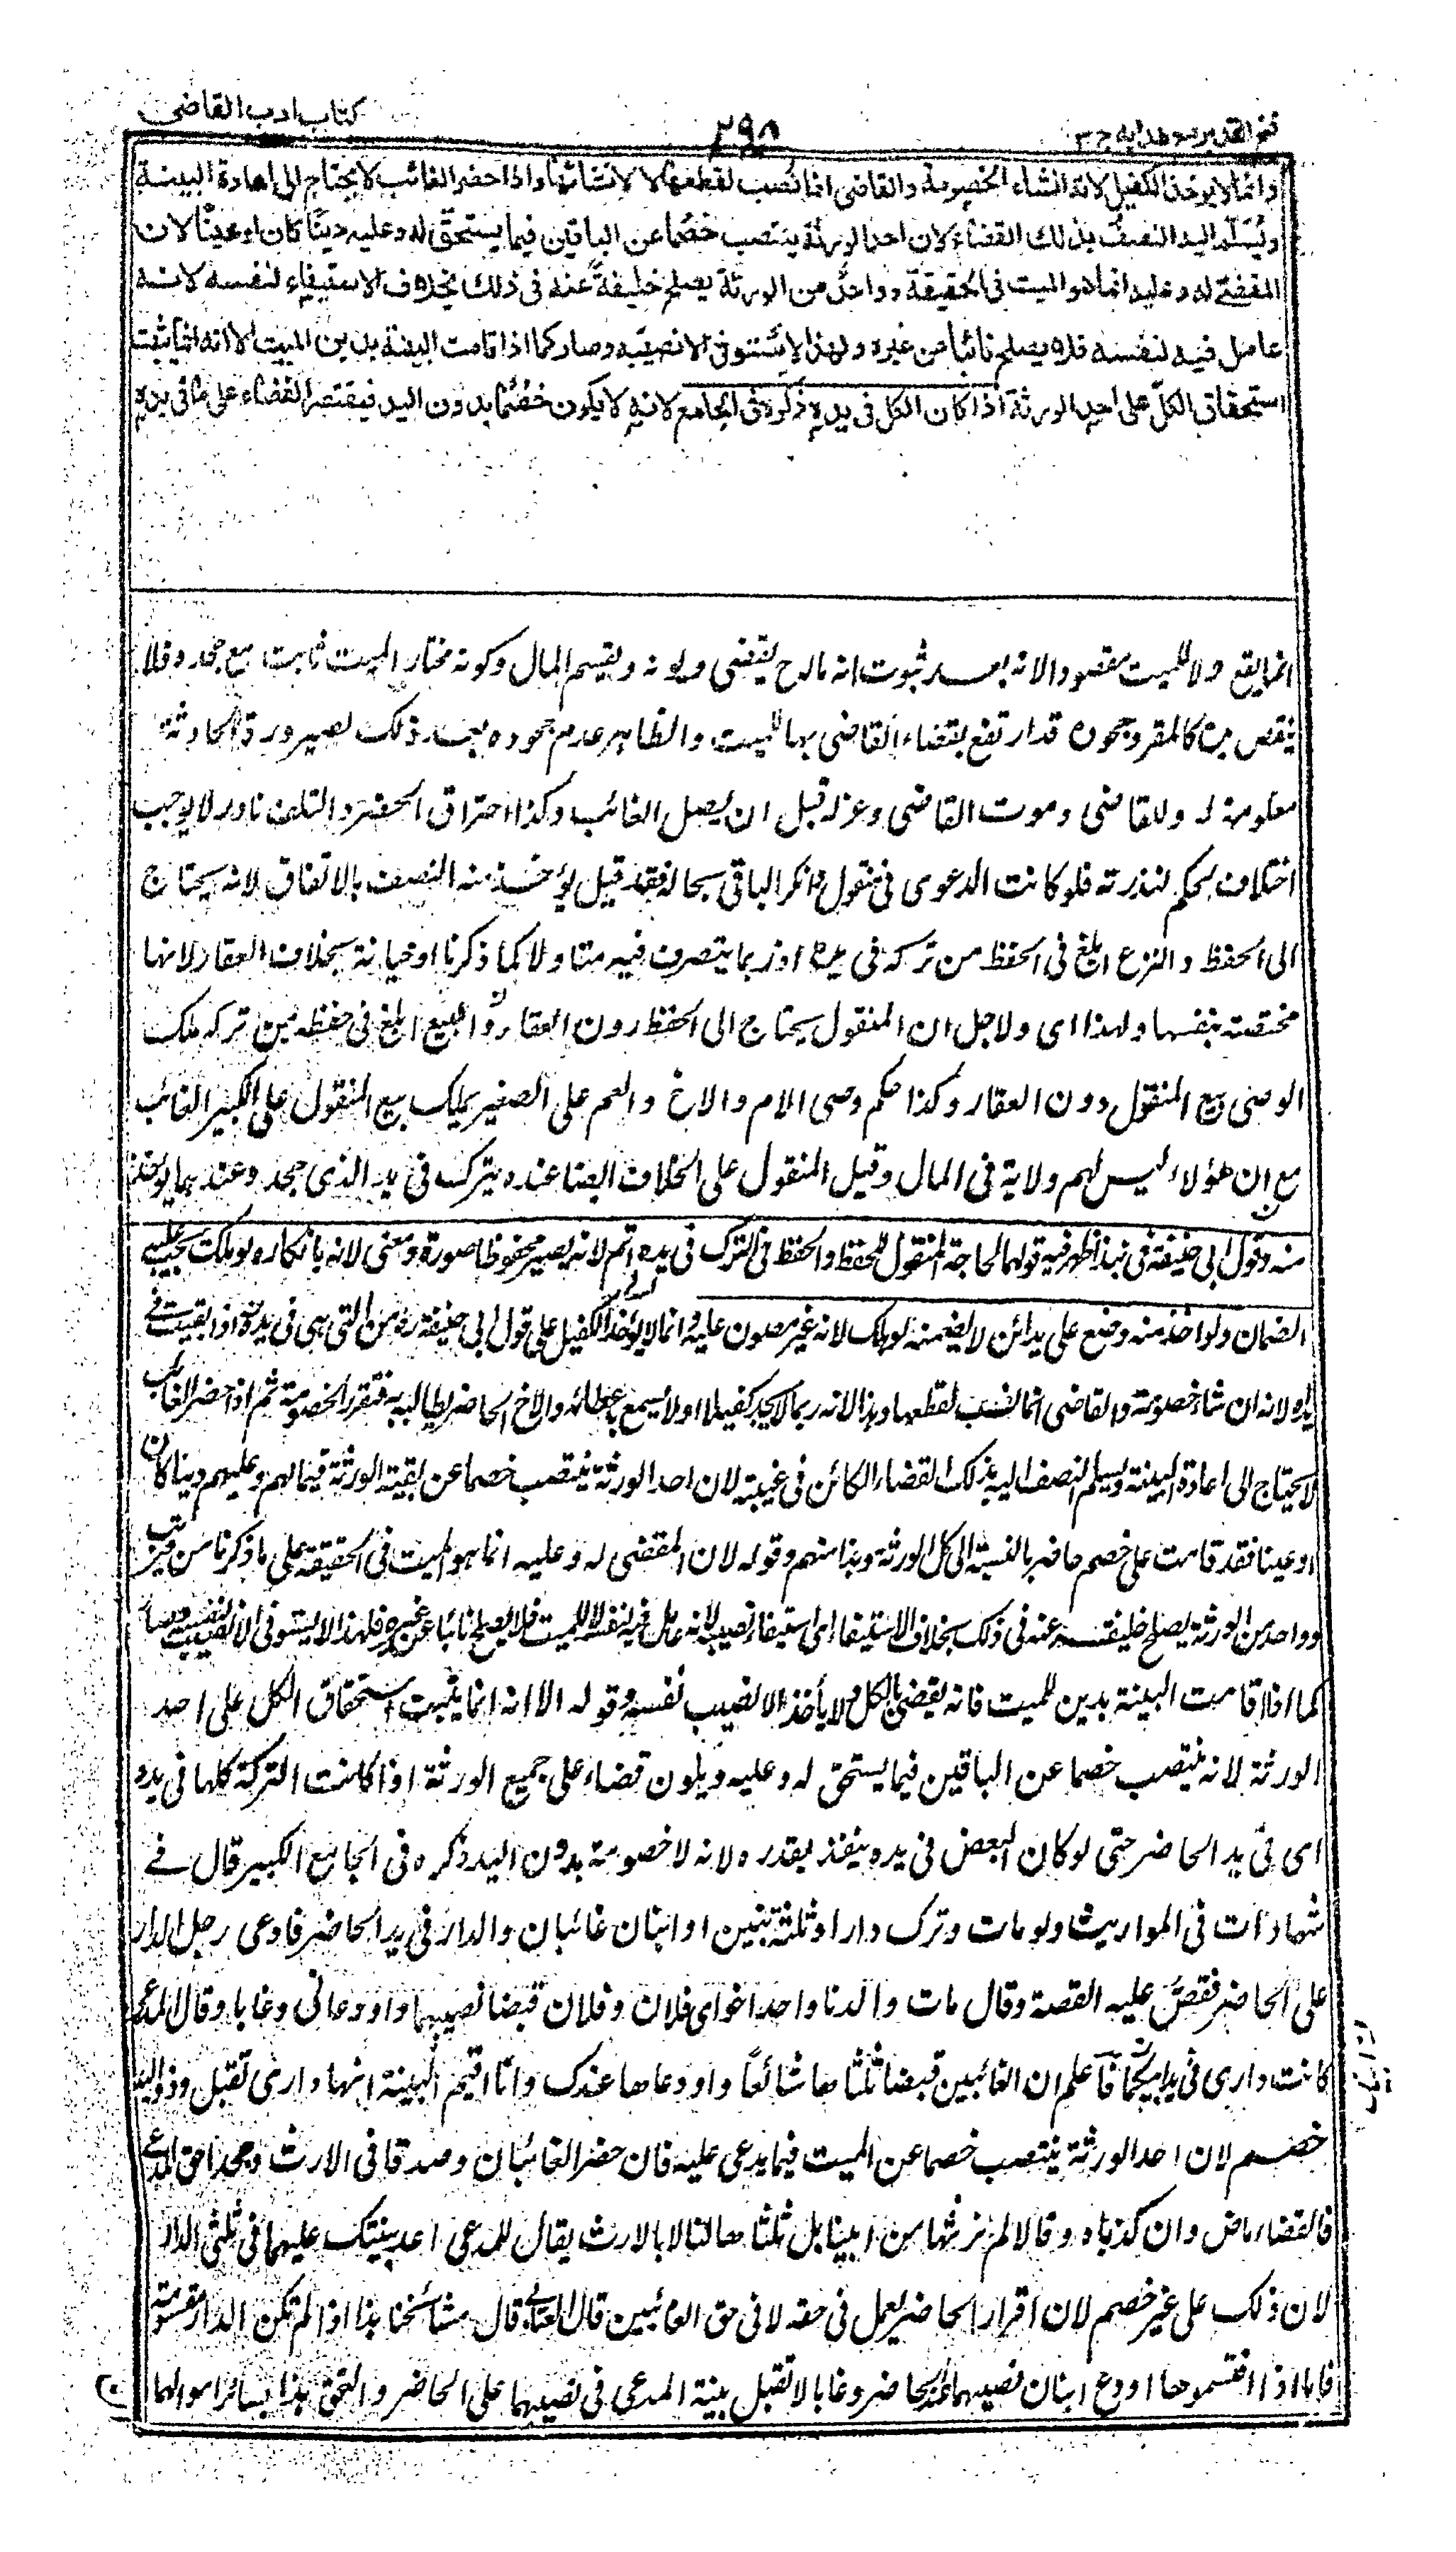 فتح القدير مع هدايه ج ٣
٢٩٨
كتاب ادب القاضى
وانما لا يوخذ الكفيل لانه انشاء الخصومة والقاضى انما نُصب لقطعها لا لانشائها واذا حضر الغائب لا يحتاج الى اعادة البينة
ويُسَلَّم اليه النصف بذلك القضاء لان احد الورثة ينتصب خصما عن الباقين فيما يستحق له وعليه دينًا كان او عينًا لان
المقضىّ له وعليه انما هو الميت فى الحقيقة وواحدٌ من الورثة يصلح خليفةً عنه فى ذلك بخلاف الاستيفاء لنفسه لانه
عامل فيه لنفسه فلا يصلح نائبا عن غيره ولهذا لا يستوفى الا نصيبه وصار كما اذا قامت البينة بدين الميت الا انه انما يثبت
استحقاق الكل على احد الورثة اذا كان الكل فى يده ذكره فى الجامع لانه لا يكون خصما بدون اليد فيقتصر القضاء على ما فى يده
انما يقع ولا للميت مقصودا لانه بعد ثبوت انه ماله ح يقضى ديونه ويقسم المال وكونه مختار الميت ثابت مع جحده فلا
ينقص من كالمقر وجحوده قد ارتفع بقضاء القاضى بها للميت والظاهر عدم جحوده بعد ذلك لصيرورة الحادثة
معلومة له وللقاضى وموت القاضى وعزله قبل ان يصل الغائب وكذا احتراق المحضر والتلف نادر لا يوجب
اختلاف الحكم لندرته فلو كانت الدعوى فى منقول وانكر والباقى بحاله فقد قيل يؤخذ منه النصف بالاتفاق لانه يحتاج
الى الحفظ والنزع ابلغ فى الحفظ من تركه فى يده اذ ربما يتصرف فيه متاولا كما ذكرنا او خيانة بخلاف العقار لانها
محصنة بنفسها ولهذا اى ولاجل ان المنقول يحتاج الى الحفظ دون العقار والبيع ابلغ فى حفظه من تركه ملك
الوصى بيع المنقول دون العقار وكذا حكم وصى الام والاخ والعم على الصغير يملك بيع المنقول على الكبير الغائب
مع ان هؤلاء ليس لهم ولاية فى المال وقيل المنقول على الخلاف ايضا عنده يترك فى يد الذى جحد وعندهما يوخذ
منه وقول ابى حنيفة فى هذا اظهر فيه قولهما لحاجة المنقول للحفظ والحفظ فى الترك فى يده اتم لانه يصير محفوظا صورة ومعنى لانه بانكاره لو هلكت يجب عليه
الضمان ولو اخذ منه وضع على يد امين لا يضمنه لو هلك لانه غير مضمون عليه وانما لا يؤخذ الكفيل على قول ابى حنيفة ره من التى هى فى يده اذا بقيت فى
يده لانه انشاء خصومة والقاضى انما نصب لقطعها وهذا لانه ربما لا يجد كفيلا او لا يسمح باعطائه والاخ الحاضر يطالبه به فتقرر الخصومة ثم اذا حضر الغائب
لا يحتاج الى اعادة البينة ويسلم النصف اليه بذلك القضاء الكائن فى غيبته لان احد الورثة ينتصب خصما عن بقية الورثة فيما لهم وعليهم دينا كان
او عينا فقد قامت على خصم حاضر بالنسبة الى كل الورثة وهذا منهم وقوله لان المقضى له وعليه انما هو الميت فى الحقيقة على ما ذكرنا من قريب
وواحد من الورثة يصلح خليفة عنه فى ذلك بخلاف الاستيفاء اى استيفاء نصيبه لانه عامل فيه لنفسه لا للميت فلا يصلح نائبا عن غيره فلهذا لا يستوفى الا نصيبه وصار
كما اذا قامت البينة بدين للميت فانه يقضى بالكل ولا يأخذ الا نصيب نفسه وقوله الا انه انما يثبت استحقاق الكل على احد
الورثة لانه ينتصب خصما عن الباقين فيما يستحق له وعليه ويكون قضاء على جميع الورثة اذا كانت التركة كلها فى يده
اى فى يد الحاضر حتى لو كان البعض فى يده ينفذ بقدره لانه لا خصومة بدون اليد ذكره فى الجامع الكبير قال فى
شهادات فى المواريث ولو مات وترك دارا وثلثة بنين او ابنان غائبان والدار فى يد الحاضر فادعى رجل الدار
على الحاضر فقصّ عليه القصة وقال مات والدنا واحد اخواى فلان وفلان قبضا نصيبهما واودعانى وغابا وقال المدعى
كانت دارى فى يد ابيكما فآ علم ان الغائبين قبضا ثلثاها شائعًا واودعاها عندك وانا اقيم البينة انها دارى تقبل وذو اليد
خصم لان احد الورثة ينتصب خصما عن الميت فيما يدعى عليه فان حضر الغائبان وصدقا فى الارث وجحدا حق المدعى
فالقضاء ماض وان كذباه وقالا لم نرثها من ابينا بل ثلثاها لنا لا بالارث يقال للمدعى اعد بينتك عليهما فى ثلثى الدار
لان ذلك على غير خصم لان اقرار الحاضر يعمل فى حقه لا فى حق الغائبين قال العتابى قال مشائخنا هذا اذا لم تكن الدار مقسومة
فاما اذا اقتسموها اودع ابنان نصيبهما عند الحاضر وغابا لا تقبل بينة المدعى فى نصيبهما على الحاضر والتحق هذا بسائر اموالهما